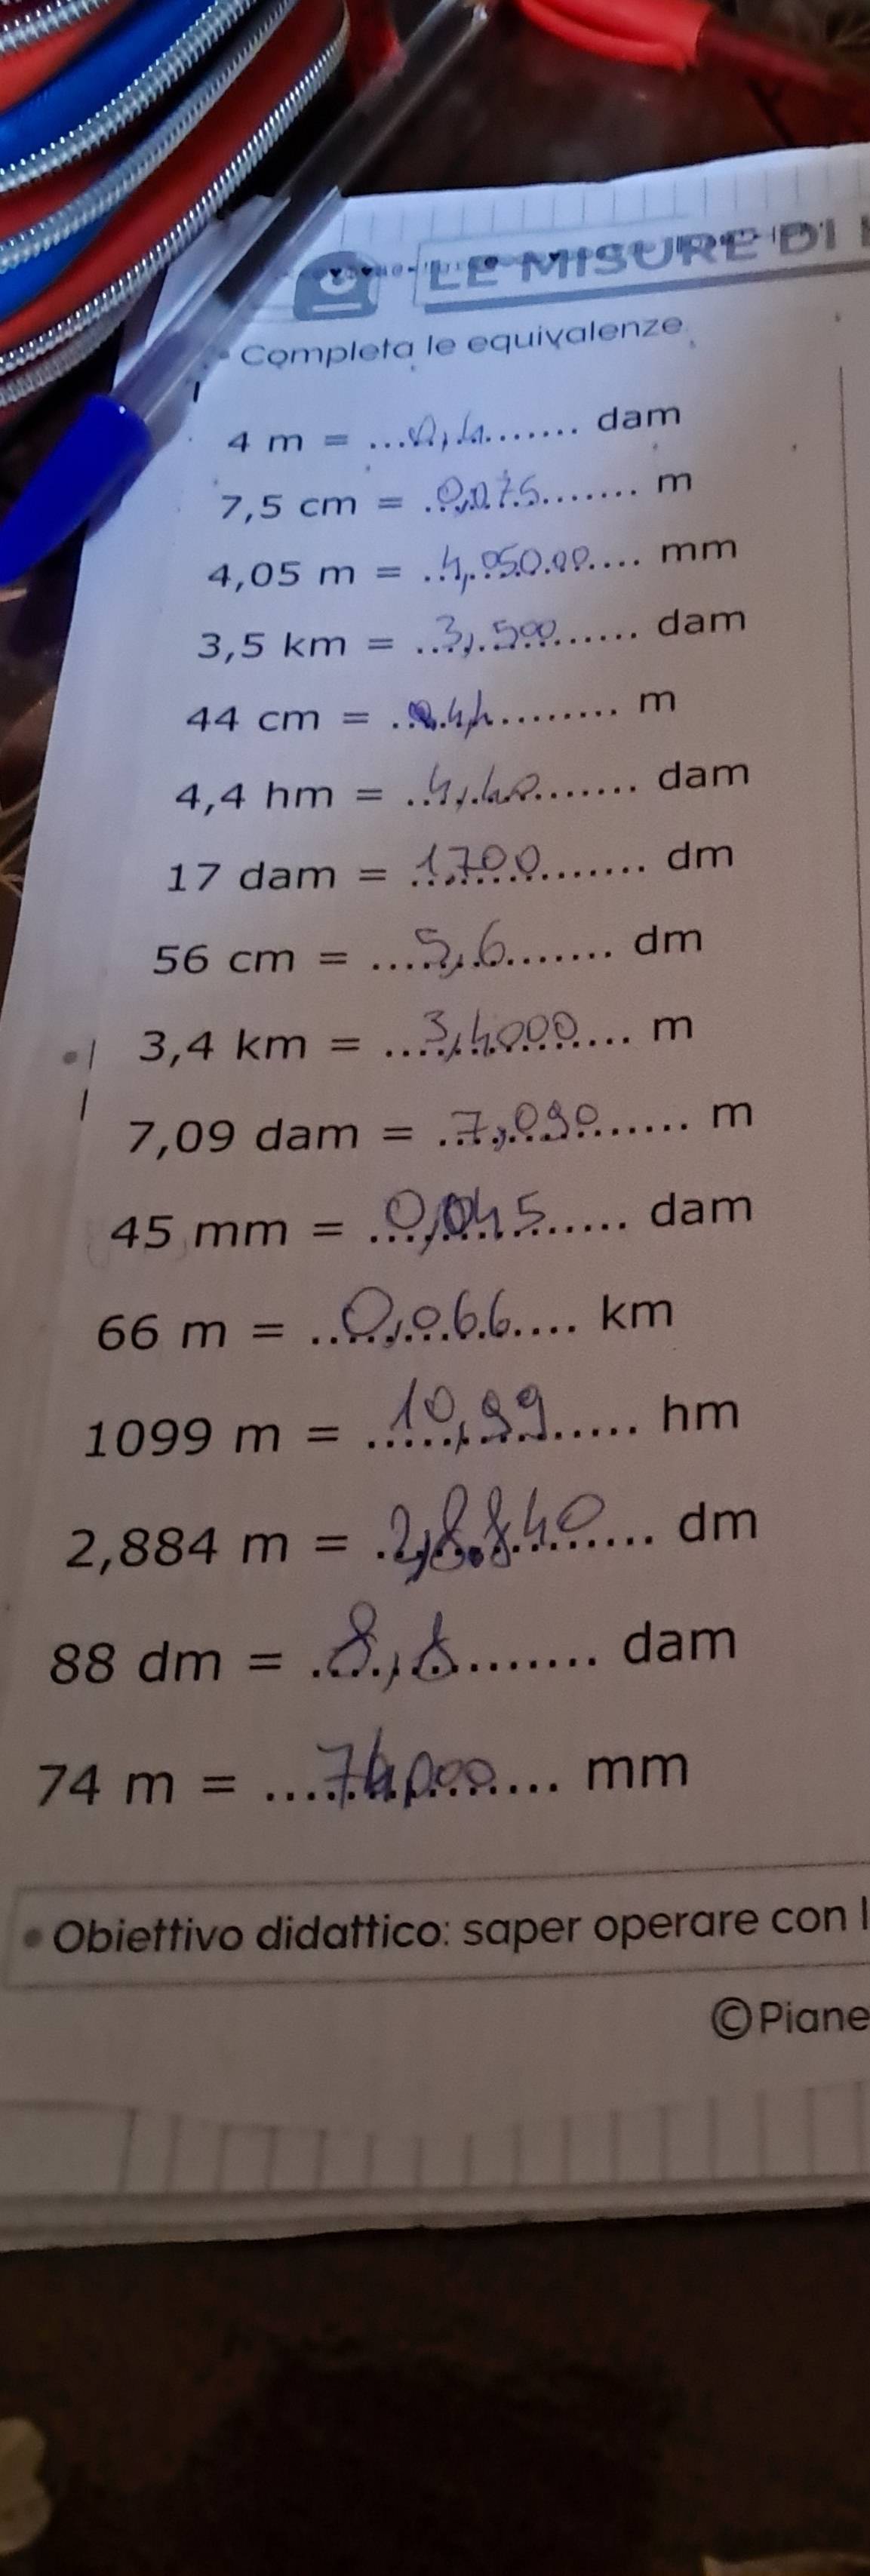 LE MISURE DI
Completa le equivalenze
4 m = ...0,4....... dam
7,5 cm = .0,075....... m
4,05 m = ..4,05000.... mm
3,5 km = ..3,500....... dam
44 cm = ..44......... m
4,4 hm = ..4,40....... dam
17 dam = .1700....... dm
56 cm = ....5,6....... dm
3,4 km = ...3,4000.... m
7,09 dam = .7,090...... m
45 mm = .0,045..... dam
66 m = ..0,066.... km
1099 m = ..10,99...... hm
2,884 m = .2,8.840.... dm
88 dm = .8,8....... dam
74 m = ...74,000.... mm
Obiettivo didattico: saper operare con
©Piane